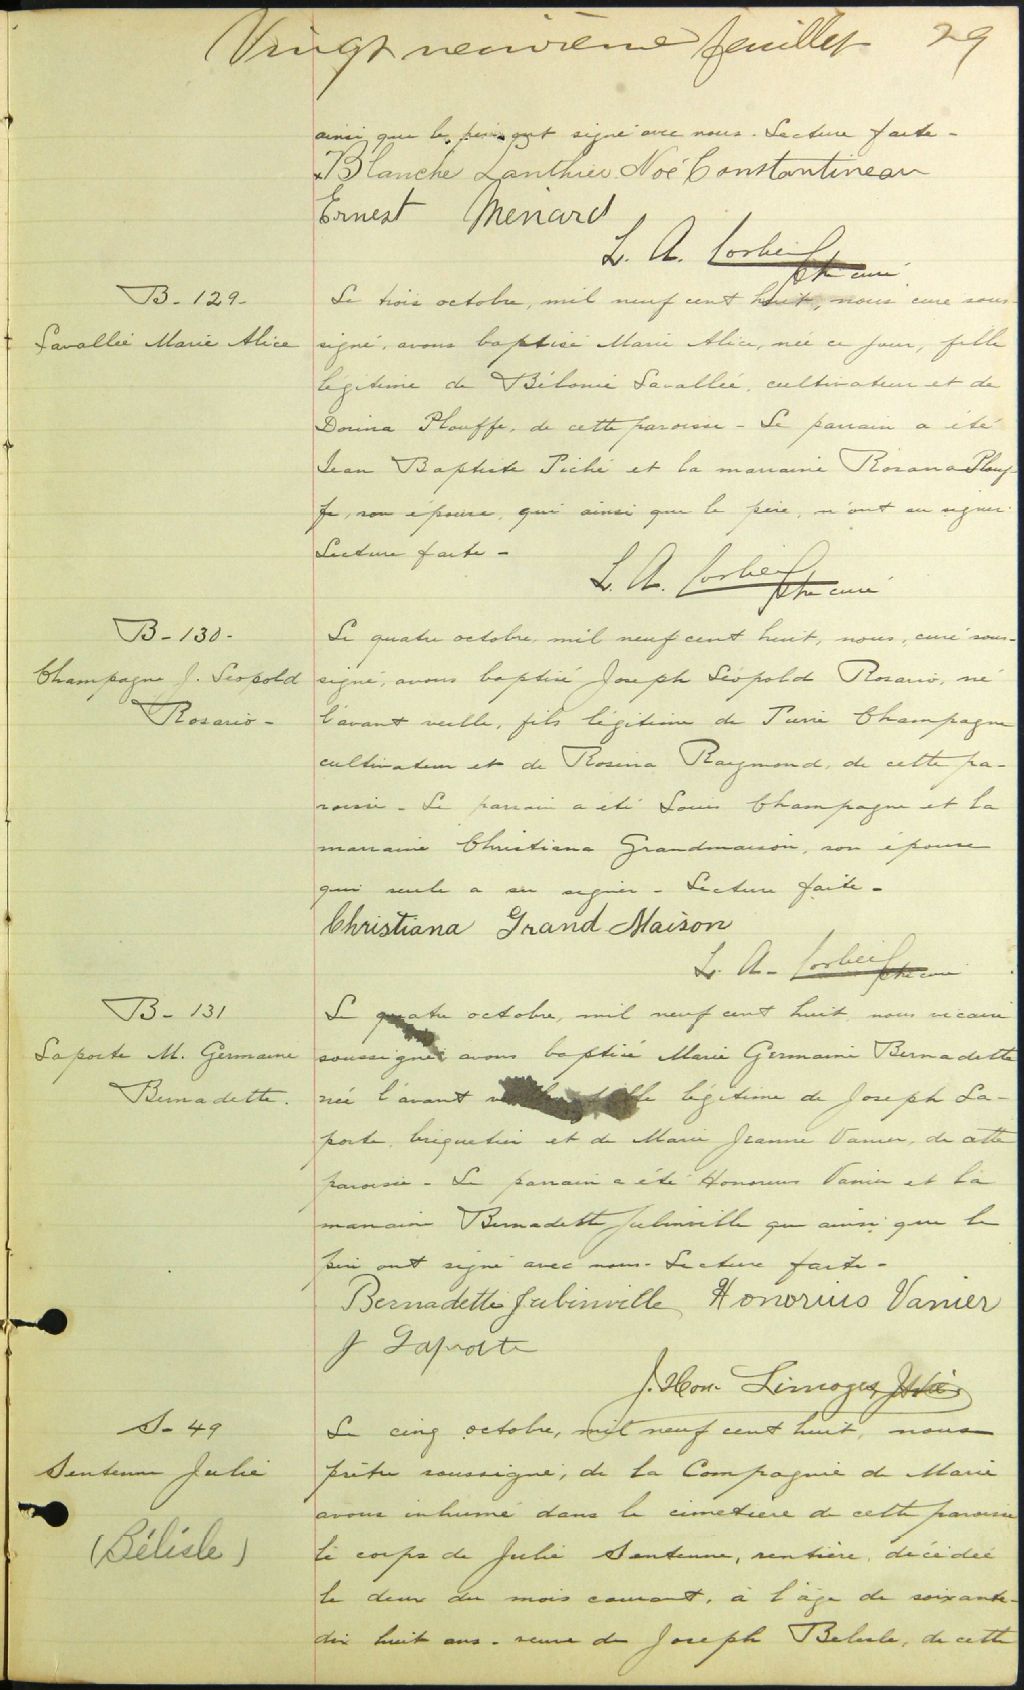 Vingt neuvième feuillet 29
ainsi que le père ont signé avec nous. Lecture faite -
Blanche Lanthier. Noé Constantineau
Ernest Menard
L. A. Corbeil
Ptre curé
B - 129 -
Lavallée Marie Alice
Le trois octobre, mil neuf cent huit, nous curé sous-
signé, avons baptisé Marie Alice, née ce jour, fille
légitime de Bélonie Lavallée, cultivateur et de
Dorina Plouffe, de cette paroisse - Le parrain a été
Jean Baptiste Piché et la marraine Rosana Plouf-
fe, son épouse, qui ainsi que le père, n'ont su signer.
Lecture faite -
L. A. Corbeil
Ptre curé
B - 130 -
Champagne J. Léopold
Rosario -
Le quatre octobre, mil neuf cent huit, nous, curé sous-
signé, avons baptisé Joseph Léopold Rosario, né
l'avant veille, fils légitime de Pierre Champagne
cultivateur et de Rosina Raymond, de cette pa-
roisse - Le parrain a été Louis Champagne et la
marraine Christiana Grandmaison, son épouse
qui seule a su signer - Lecture faite -
Christiana Grand Maison
L. A. Corbeil Ptre curé
B - 131
Laporte M. Germaine
Bernadette.
Le quatre octobre, mil neuf cent huit, nous vicaire
soussigné avons baptisé Marie Germaine Bernadette
née l'avant légitime de Joseph La-
porte, briquetier et de Marie Jeanne Vanier, de cette
paroisse - Le parrain a été Honorius Vanier et la
marraine Bernadette Jubinville qui ainsi que le
père ont signé avec nous. Lecture faite -
Bernadette Jubinville Honorius Vanier
J Laporte
J. Hon. Limoges
S - 49
Sentenne Julie
(Bélisle)
Le cinq octobre, mil neuf cent huit, nous
prêtre soussigné, de la Compagnie de Marie
avons inhumé dans le cimetière de cette paroisse
le corps de Julie Sentenne, rentière, décédée
le deux du mois courant, à l'âge de soixante-
dix huit ans - veuve de Joseph Belisle, de cette